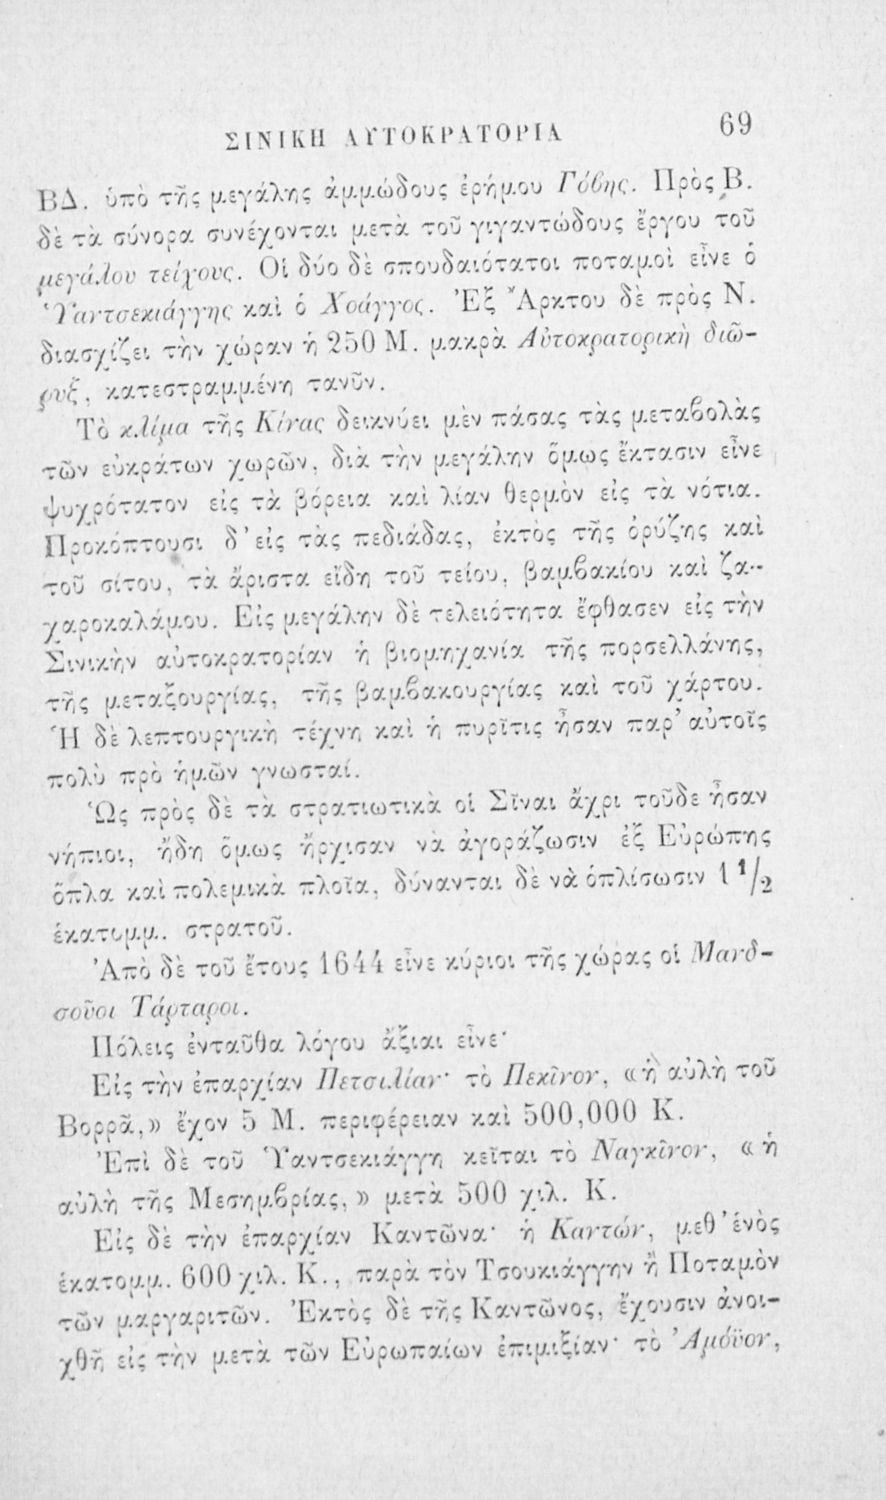 ΣΙΝΙΚΗ ΑΥΤΟΚΡΑΤΟΡΙΑ 69
ΒΔ. ὑπὸ τῆς μεγάλης ἀμμώδους ἐρήμου Γόβης. Πρὸς Β.
δὲ τὰ σύνορα συνέχονται μετὰ τοῦ γιγαντώδους ἔργου τοῦ
μεγάλου τείχους. Οἱ δύο δὲ σπουδαιότατοι ποταμοὶ εἶνε ὁ
Ὑαντσεκιάγγης καὶ ὁ Χοάγγος. Ἐξ Ἄρκτου δὲ πρὸς Ν.
διασχίζει τὴν χώραν ἡ 250 Μ. μακρὰ Αὐτοκρατορικὴ διῶ-
ρυξ, κατεστραμμένη τανῦν.
Τὸ κλίμα τῆς Κίνας δεικνύει μὲν πάσας τὰς μεταβολὰς
τῶν εὐκράτων χωρῶν, διὰ τὴν μεγάλην ὅμως ἔκτασιν εἶνε
ψυχρότατον εἰς τὰ βόρεια καὶ λίαν θερμὸν εἰς τὰ νότια.
Προκόπτουσι δ' εἰς τὰς πεδιάδας, ἐκτὸς τῆς ὀρύζης καὶ
τοῦ σίτου, τὰ ἄριστα εἴδη τοῦ τείου, βαμβακίου καὶ ζα-
χαροκαλάμου. Εἰς μεγάλην δὲ τελειότητα ἔφθασεν εἰς τὴν
Σινικὴν αὐτοκρατορίαν ἡ βιομηχανία τῆς πορσελλάνης,
τῆς μεταξουργίας, τῆς βαμβακουργίας καὶ τοῦ χάρτου.
Ἡ δὲ λεπτουργικὴ τέχνη καὶ ἡ πυρῖτις ἦσαν παρ' αὐτοῖς
πολὺ πρὸ ἡμῶν γνωσταί.
Ὡς πρὸς δὲ τὰ στρατιωτικὰ οἱ Σῖναι ἄχρι τοῦδε ἦσαν
νήπιοι, ἤδη ὅμως ἤρχισαν νὰ ἀγοράζωσιν ἐξ Εὐρώπης
ὅπλα καὶ πολεμικὰ πλοῖα, δύνανται δὲ νὰ ὁπλίσωσιν 1 1/2
ἑκατομμ. στρατοῦ.
Ἀπὸ δὲ τοῦ ἔτους 1644 εἶνε κύριοι τῆς χώρας οἱ Μανδ-
σοῦοι Τάρταροι.
Πόλεις ἐνταῦθα λόγου ἄξιαι εἶνε·
Εἰς τὴν ἐπαρχίαν Πετσιλίαν· τὸ Πεκῖνον, «ἡ αὐλὴ τοῦ
Βορρᾶ,» ἔχον 5 Μ. περιφέρειαν καὶ 500,000 Κ.
Ἐπὶ δὲ τοῦ Ὑαντσεκιάγγη κεῖται τὸ Ναγκῖνον, «ἡ
αὐλὴ τῆς Μεσημβρίας,» μετὰ 500 χιλ. Κ.
Εἰς δὲ τὴν ἐπαρχίαν Καντῶνα· ἡ Καντών, μεθ' ἑνὸς
ἑκατομμ. 600 χιλ. Κ., παρὰ τὸν Τσουκιάγγην ἢ Ποταμὸν
τῶν μαργαριτῶν. Ἐκτὸς δὲ τῆς Καντῶνος, ἔχουσιν ἀνοι-
χθῆ εἰς τὴν μετὰ τῶν Εὐρωπαίων ἐπιμιξίαν· τὸ Ἀμόϋον,